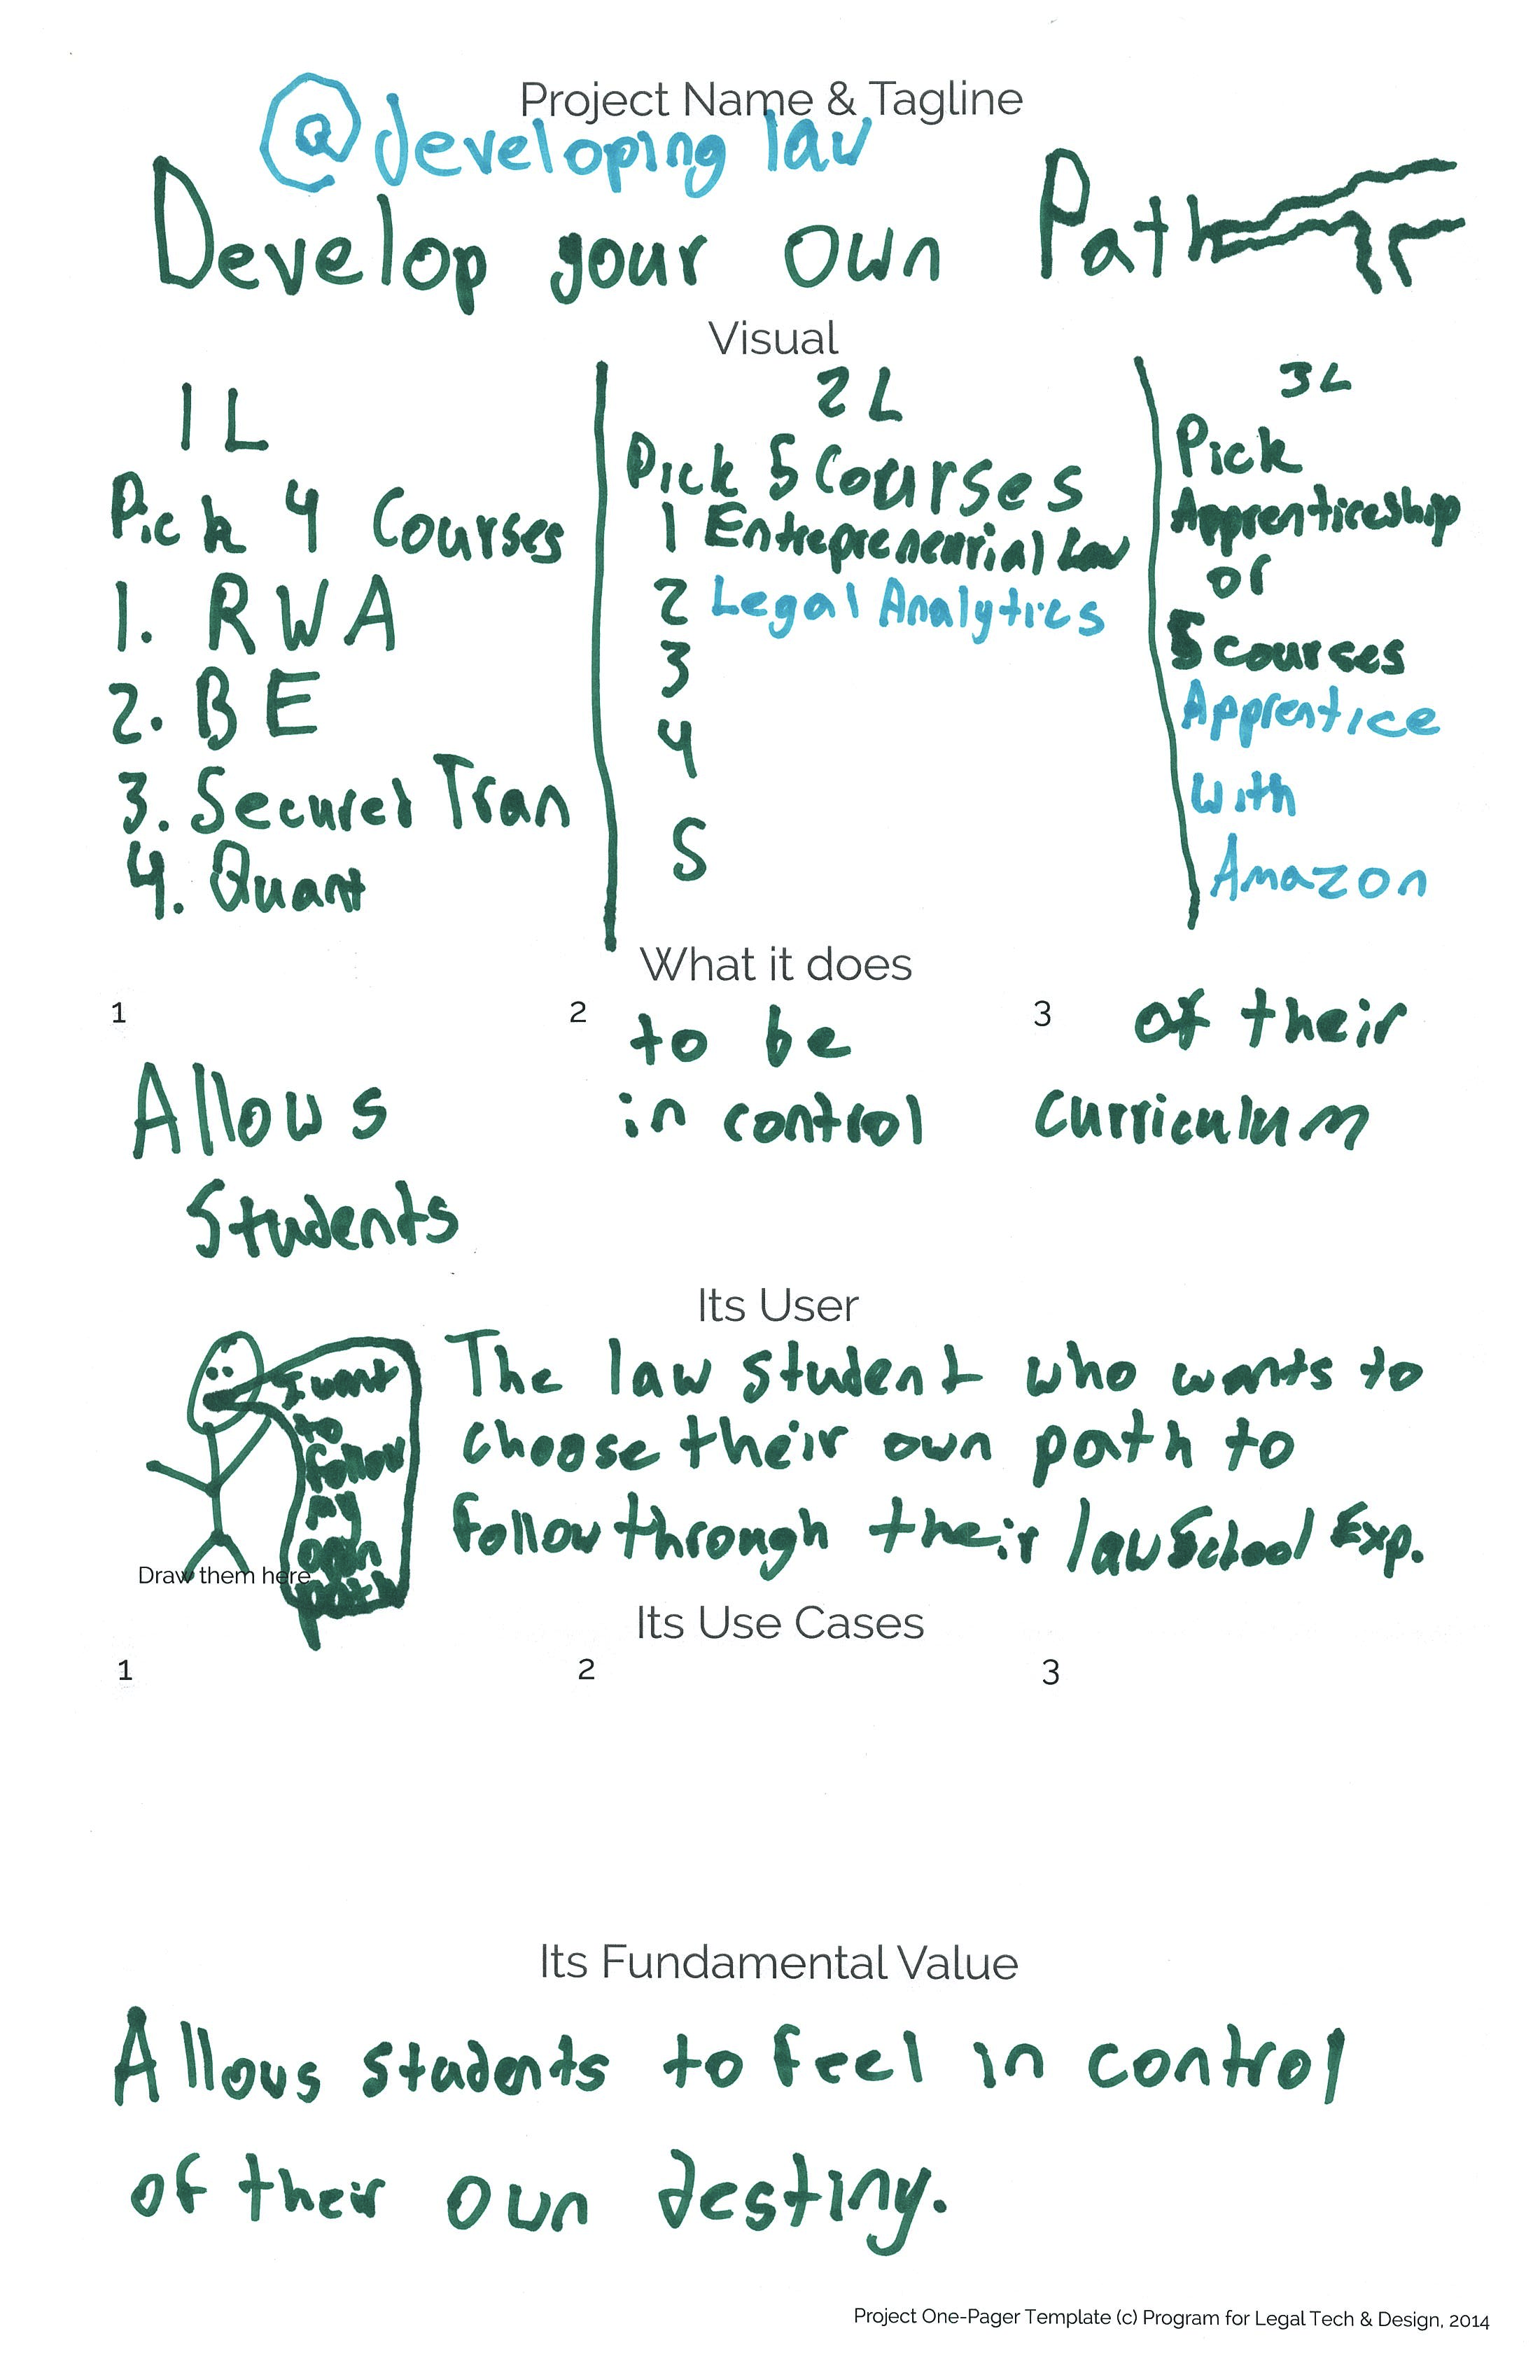 Project Name & Tagline
@developing law
Develop your own Path
Visual
1L
Pick 4 Courses
1. RWA
2. BE
3. Secured Tran
4. Quant
2L
Pick 5 Courses
1 Entrepreneurial Law
2 Legal Analytics
3
4
5
3L
Pick
Apprenticeship
or
5 courses
Apprentice
with
Amazon
What it does
1
Allows
Students
2
to be
in control
3
of their
curriculum
Its User
I want
to
follow
my
own
path
Draw them here
The law student who wants to
choose their own path to
follow through their law School Exp.
Its Use Cases
1
2
3
Its Fundamental Value
Allows students to feel in control
of their own destiny.
Project One-Pager Template (c) Program for Legal Tech & Design, 2014